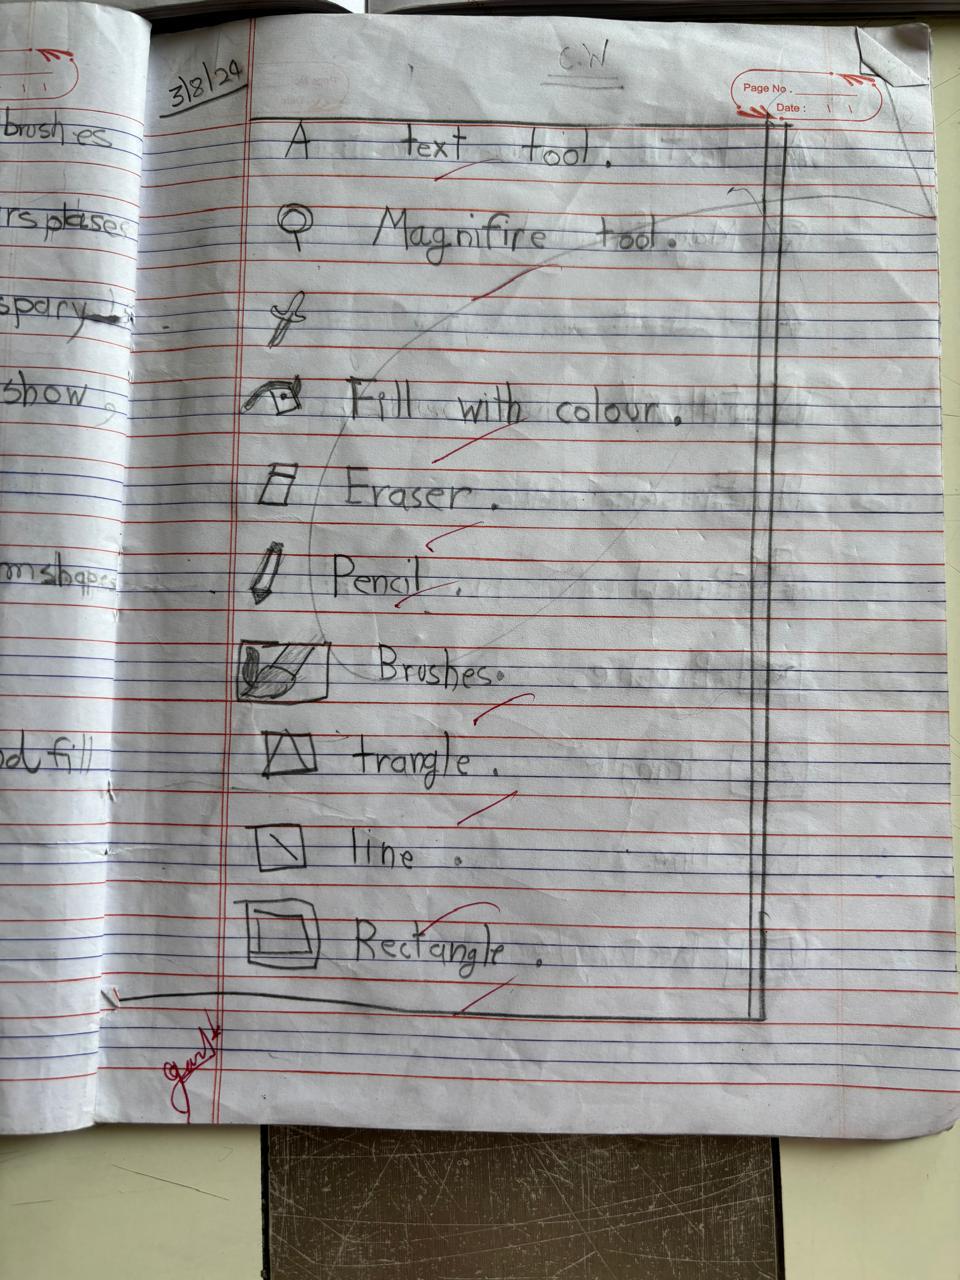 brushes
rs please
spary
show
m shapes
nd fill
3/8/24
C.W
Page No.
Date :
A text tool.
Magnifire tool.
Fill with colour.
Eraser.
Pencil.
Brushes.
trangle.
line.
Rectangle.